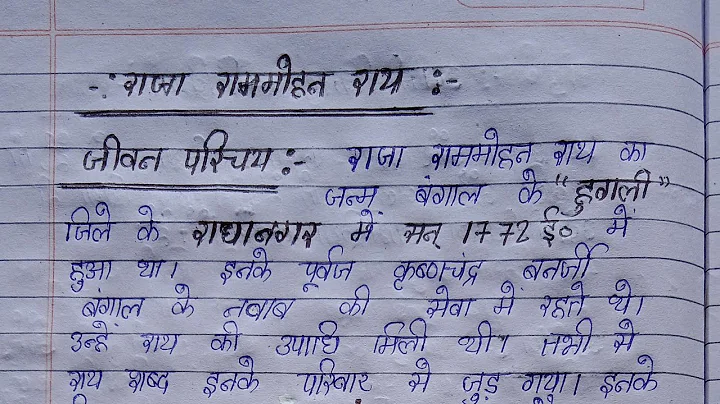 -: राजा राममोहन राय :-
जीवन परिचय :- राजा राममोहन राय का
जन्म बंगाल के "हुगली"
जिले के राधानगर में सन् 1772 ई० में
हुआ था। इनके पूर्वज कृष्णचंद्र बनर्जी
बंगाल के नबाब की सेवा में रहते थे।
उन्हे राय की उपाधि मिली थी। तभी से
राय शब्द इनके परिवार से जुड़ गया। इनके